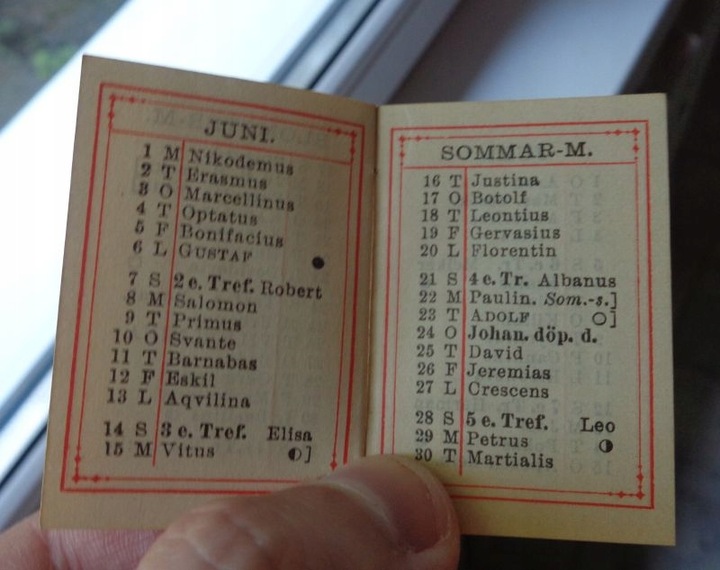 JUNI.
1 M Nikodemus
2 T Erasmus
3 O Marcellinus
4 T Optatus
5 F Bonifacius
6 L GUSTAF ●
7 S 2 e. Tref. Robert
8 M Salomon
9 T Primus
10 O Svante
11 T Barnabas
12 F Eskil
13 L Aqvilina
14 S 3 e. Tref. Elisa
15 M Vitus ◐]
SOMMAR-M.
16 T Justina
17 O Botolf
18 T Leontius
19 F Gervasius
20 L Florentin
21 S 4 e. Tr. Albanus
22 M Paulin. Som.-s.]
23 T ADOLF ○]
24 O Johan. döp. d.
25 T David
26 F Jeremias
27 L Crescens
28 S 5 e. Tref. Leo
29 M Petrus ◑
30 T Martialis